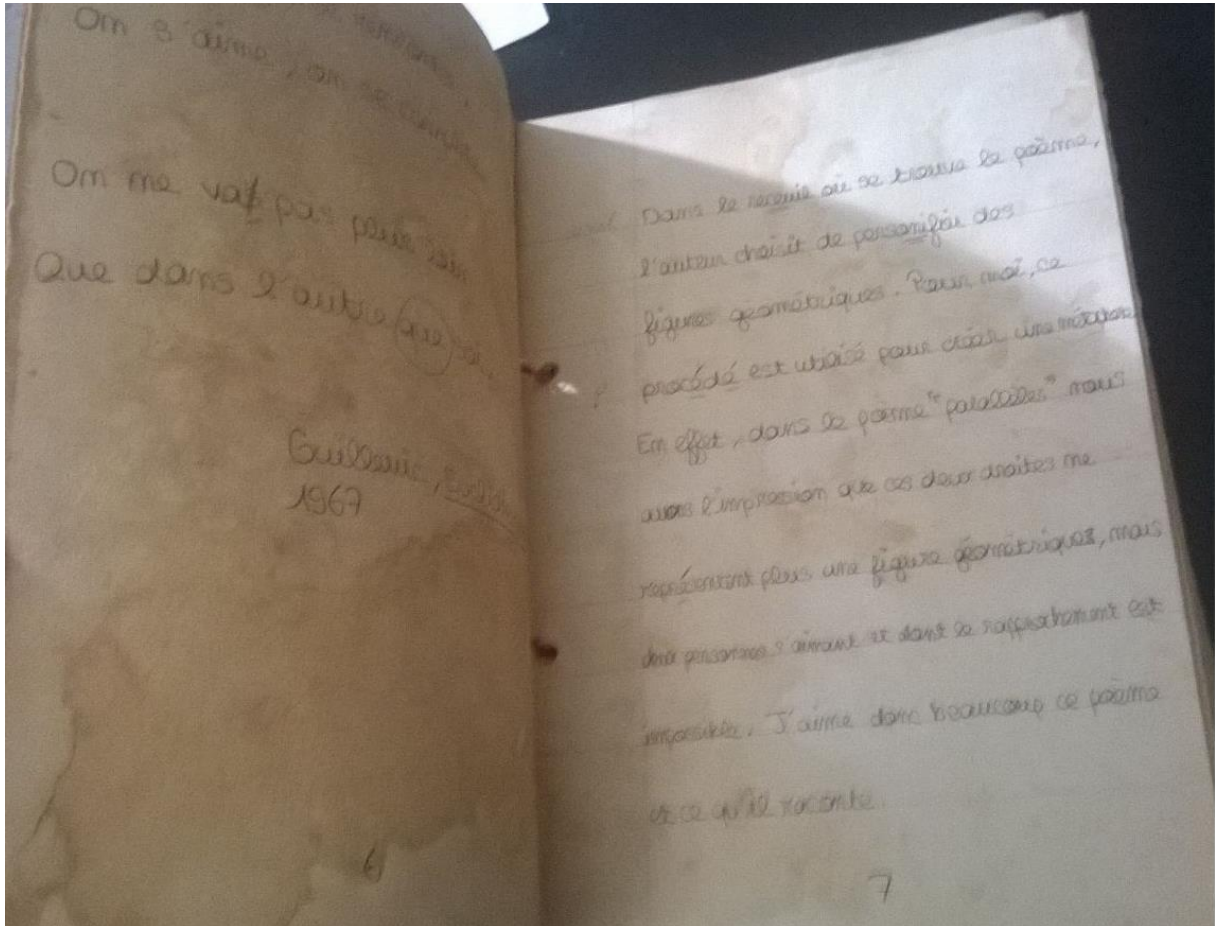 On s'aime, on se
On ne vat pas plus loin
Que dans l'autre que
Guillevic,
1967
6
Dans le receuie où se trouve le poème,
l'auteur choisit de personifier des
figures geométriques. Pour moi, ce
procédé est utilisé pour créer une métaphore
En effet, dans le poème "parallèles" nous
avons l'impression que ces deux droites ne
représentent plus une figure géométriques, mais
deux personnes s'aimant et dont le rapprochement est
impossible. J'aime donc beaucoup ce poème
et ce qu'il raconte.
7